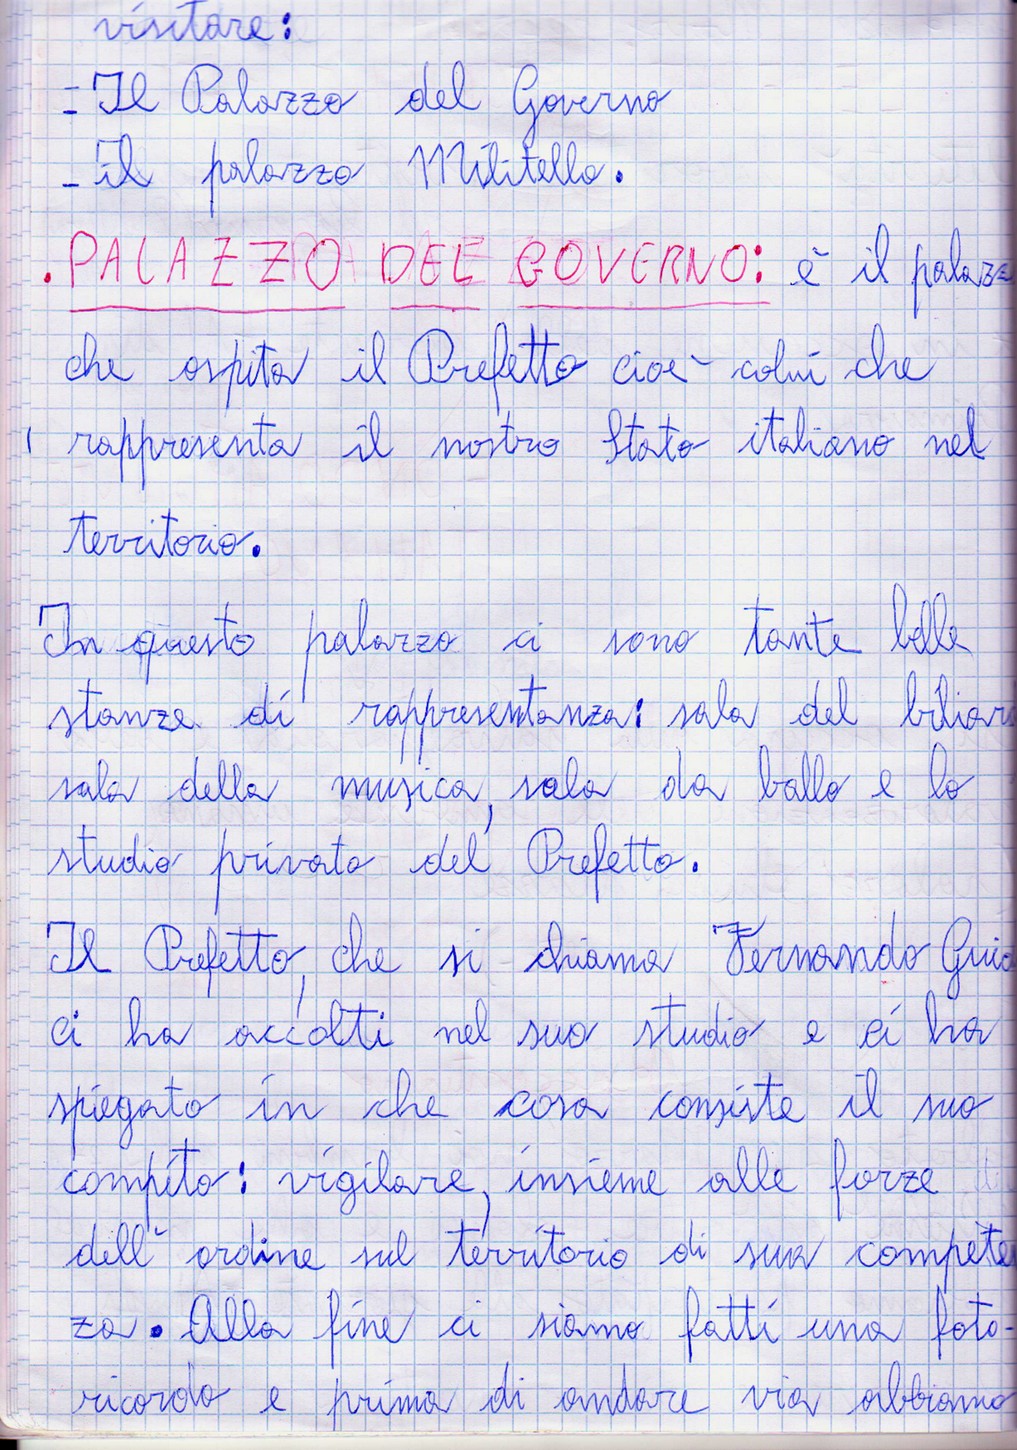 visitare:
- Il Palazzo del Governo
- il palazzo Militello.
. PALAZZO DEL GOVERNO: è il palazz
che ospita il Prefetto cioè colui che
rappresenta il nostro Stato italiano nel
territorio.
In questo palazzo ci sono tante belle
stanze di rappresentanza: sala del biliar
sala della musica, sala da ballo e lo
studio privato del Prefetto.
Il Prefetto, che si chiama Fernando Guid
ci ha accolti nel suo studio e ci ha
spiegato in che cosa consiste il suo
compito: vigilare, insieme alle forze
dell' ordine sul territorio di sua competen
za. Alla fine ci siamo fatti una foto-
ricordo e prima di andare via abbiamo